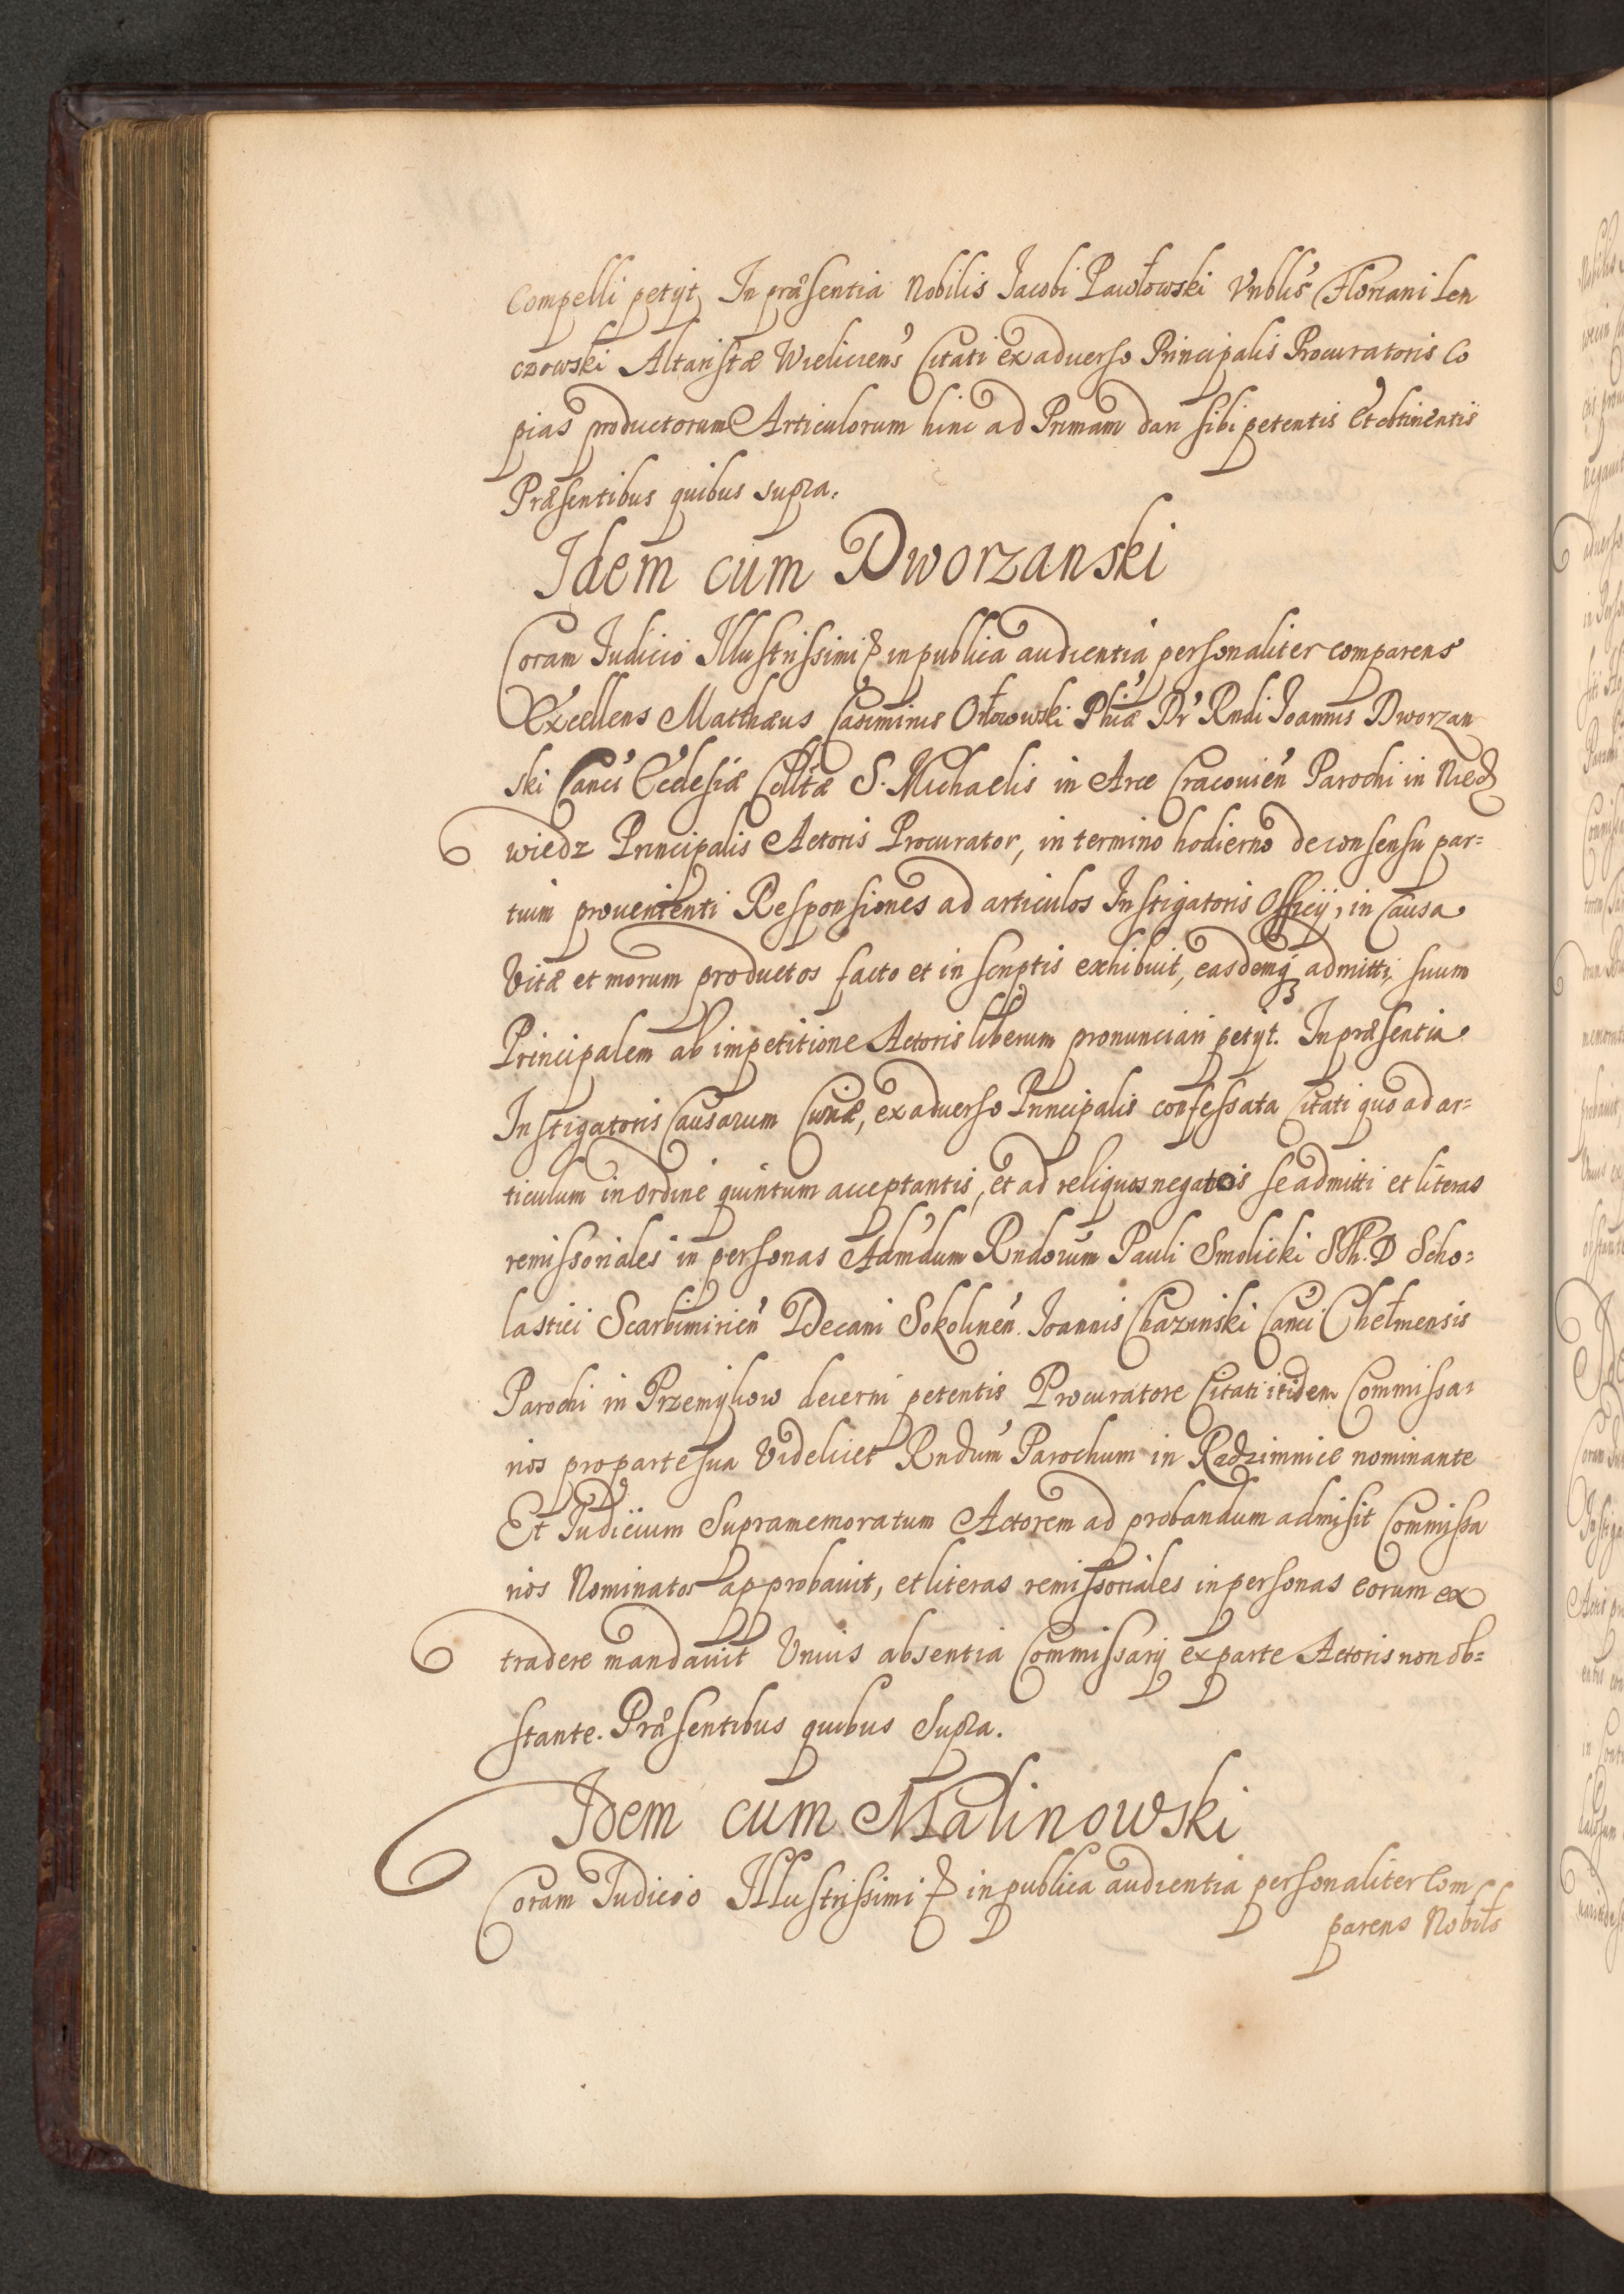 Compelli petyt In præsentia Nobilis Jacobi Pawłowski Vnblis Floriani Len
czowski Altaristæ Wieliciens Citati ex aduerso Principalis Procuratoris Co
pias productorum Articulorum hinc ad Primam dari sibi petentis Et obtinentis
Præsentibus quibus supra.
Idem cum Dworzanski
Coram Iudicio Illustrissimi & in publica audientia personaliter comparens
Excellens Matthæus Casimirus Orłowski Phiæ Dr Rndi Joannis Dworzan
ski Canci Ecclesiæ Colltæ S. Michaelis in Arce Cracouien Parochi in Niedz
wiedz Principalis Actoris Procurator, in termino hodierno de consensu par=
tium prouenienti Responsiones ad articulos Instigatoris Officij, in Causa
Vitæ et morum productos facto et in scriptis exhibuit, easdemq admitti, suum
Principalem ab impetitione Actoris liberum pronunciari petijt. In præsentia
Instigatoris Causarum Curiæ, ex aduerso Principalis confessata Citati quo ad ar=
ticulum in ordine quintum acceptantis, et ad reliquos negatos se admitti et literas
remissoriales in personas Admdum Rndorum Pauli Smolicki STh. D Scho=
lastici Scarbimirien Decani Sokolinen. Joannis Chazinski Canci Chełmensis
Parochi in Przemykow decerni petentis Procuratore Citati itidem Commissa=
rios pro parte sua Videlicet Rndum Parochum in Radzimnice nominante
Et Iudicium Supramemoratum Actorem ad probandum admisit Commissa
rios Nominatos approbauit, et literas remissoriales in personas eorum ex
tradere mandauit Vnius absentia Commissarij ex parte Actoris non ob=
stante. Præsentibus quibus Supra.
Idem cum Malinowski
Coram Iudicio Illustrissimi & in publica audientia personaliter Com
parens Nobilis